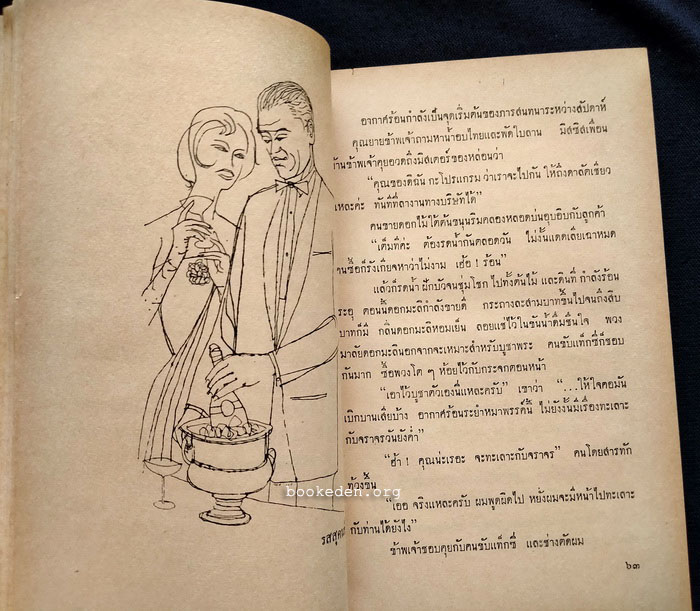 รสสุคน
bookeden.org
อากาศร้อนกำลังเป็นจุดเริ่มต้นของการสนทนาระหว่างสัปดาห์
คุณยายข้าพเจ้าถามหาน้ำอบไทยและพัดใบลาน มิสซิสเพื่อน
้านข้าพเจ้าคุยอวดถึงมิสเตอร์ของหล่อนว่า
“คุณของดิฉัน กะโปรแกรม ว่าเราจะไปกัน ให้ถึงดาลัดเชียว
แหละค่ะ ทันทีที่ลางานทางบริษัทได้”
คนขายดอกไม้ใต้ต้นขนุนริมคลองหลอดบ่นอุบอิบกับลูกค้า
“เต็มทีค่ะ ต้องรดน้ำกันตลอดวัน ไม่งั้นแดดเลียเฉาหมด
านซื้อก็รังเกียจหาว่าไม่งาม เฮ้อ ! ร้อน”
แล้วก็รดน้ำ ฝักบัวจนชุ่มโชก ไปทั้งต้นไม้ และดินที่ กำลังร้อน
ระอุ ตอนนี้ดอกมะลิกำลังขายดี กระถางละสามบาทขึ้นไปจนถึงสิบ
บาทก็มี กลิ่นดอกมะลิหอมเย็น ลอยแช่ไว้ในขันน้ำดื่มชื่นใจ พวง
มาลัยดอกมะลินอกจากจะเหมาะสำหรับบูชาพระ คนขับแท็กซี่ก็ชอบ
กันมาก ซื้อพวงโต ๆ ห้อยไว้กับกระจกตอนหน้า
“เอาไว้บูชาตัวเองนี่แหละครับ” เขาว่า “...ให้ใจคอมัน
เบิกบานเสียบ้าง อากาศร้อนระยำหมาพรรค์นี้ ไม่ยังงั้นมีเรื่องทะเลาะ
กับจราจรวันยังค่ำ”
“ฮ้า ! คุณน่ะเรอะ จะทะเลาะกับจราจร” คนโดยสารทัก
ท้วงขึ้น
“เออ จริงแหละครับ ผมพูดผิดไป หยั่งผมจะมีหน้าไปทะเลาะ
กับท่านได้ยังไง”
ข้าพเจ้าชอบคุยกับคนขับแท็กซี่ และช่างตัดผม
๖๓